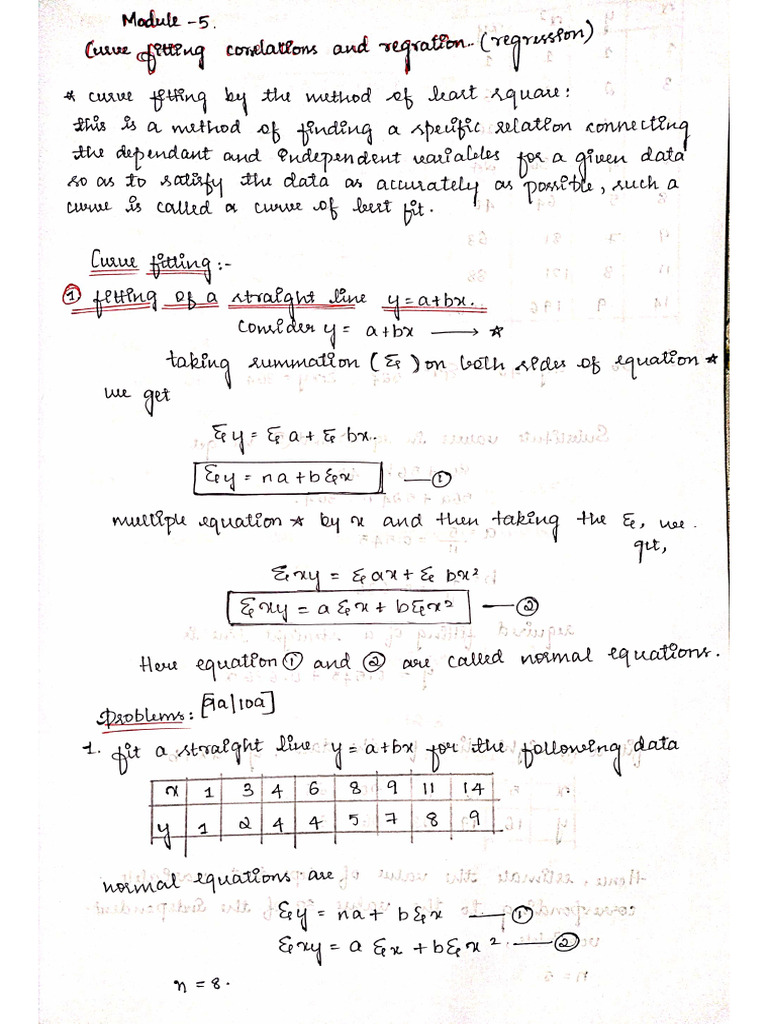 Module -5.
Curve fitting corelations and regration.. (regression)
* curve fitting by the method of least square:
this is a method of finding a specific relation connecting
the dependant and independent variables for a given data
so as to satisfy the data as accurately as possible, such a
curve is called a curve of best fit.
Curve fitting:-
① fitting of a straight line y=a+bx.
Consider y= a+bx → *
taking summation (Σ) on both sides of equation *
we get
Σy = Σa + Σbx.
Σy = na+bΣx —①
multiple equation * by x and then taking the Σ, we.
get,
Σxy = Σax + Σ bx²
Σxy = aΣx + bΣx² —②
Here equation ① and ② are called normal equations.
Problems: [9a|10a]
1. fit a straight line y=a+bx for the following data
x 1 3 4 6 8 9 11 14
y 1 2 4 4 5 7 8 9
normal equations are
Σy = na + bΣx —①
Σxy = a Σx + bΣx² —②
n = 8.